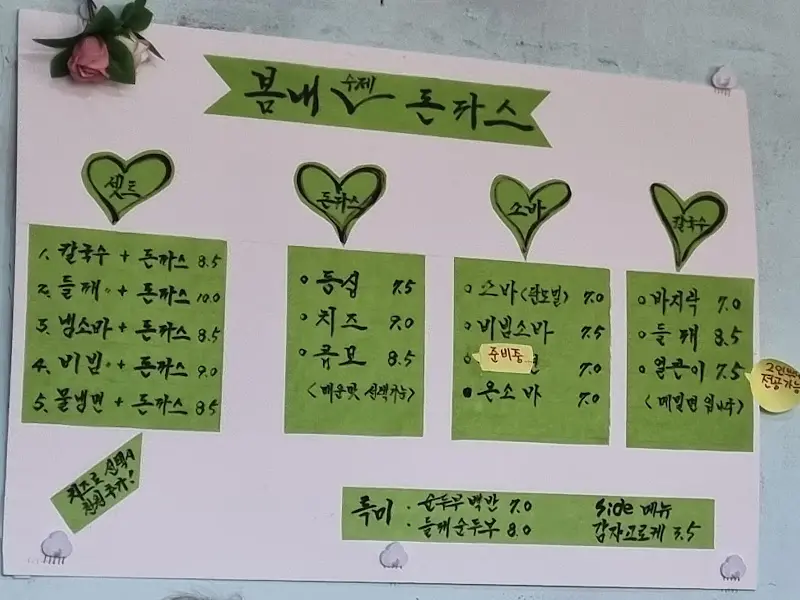 봄내 수제 돈까스
셋트
1. 칼국수 + 돈까스 8.5
2. 들깨 〃 + 돈까스 10.0
3. 냉소바 + 돈까스 8.5
4. 비빔 〃 + 돈까스 9.0
5. 물냉면 + 돈까스 8.5
치즈로 선택시
천원 추가!
돈까스
등심 7.5
치즈 9.0
8.5
<매운맛 선택가능>
소바
소바(판모밀) 7.0
비빔소바 7.5
준비중
7.0
온소바 7.0
칼국수
바지락 7.0
들깨 8.5
얼큰이 7.5
2인부터
전골가능
특미
순두부백반 7.0
들깨순두부 8.0
side 메뉴
감자고로케 3.5